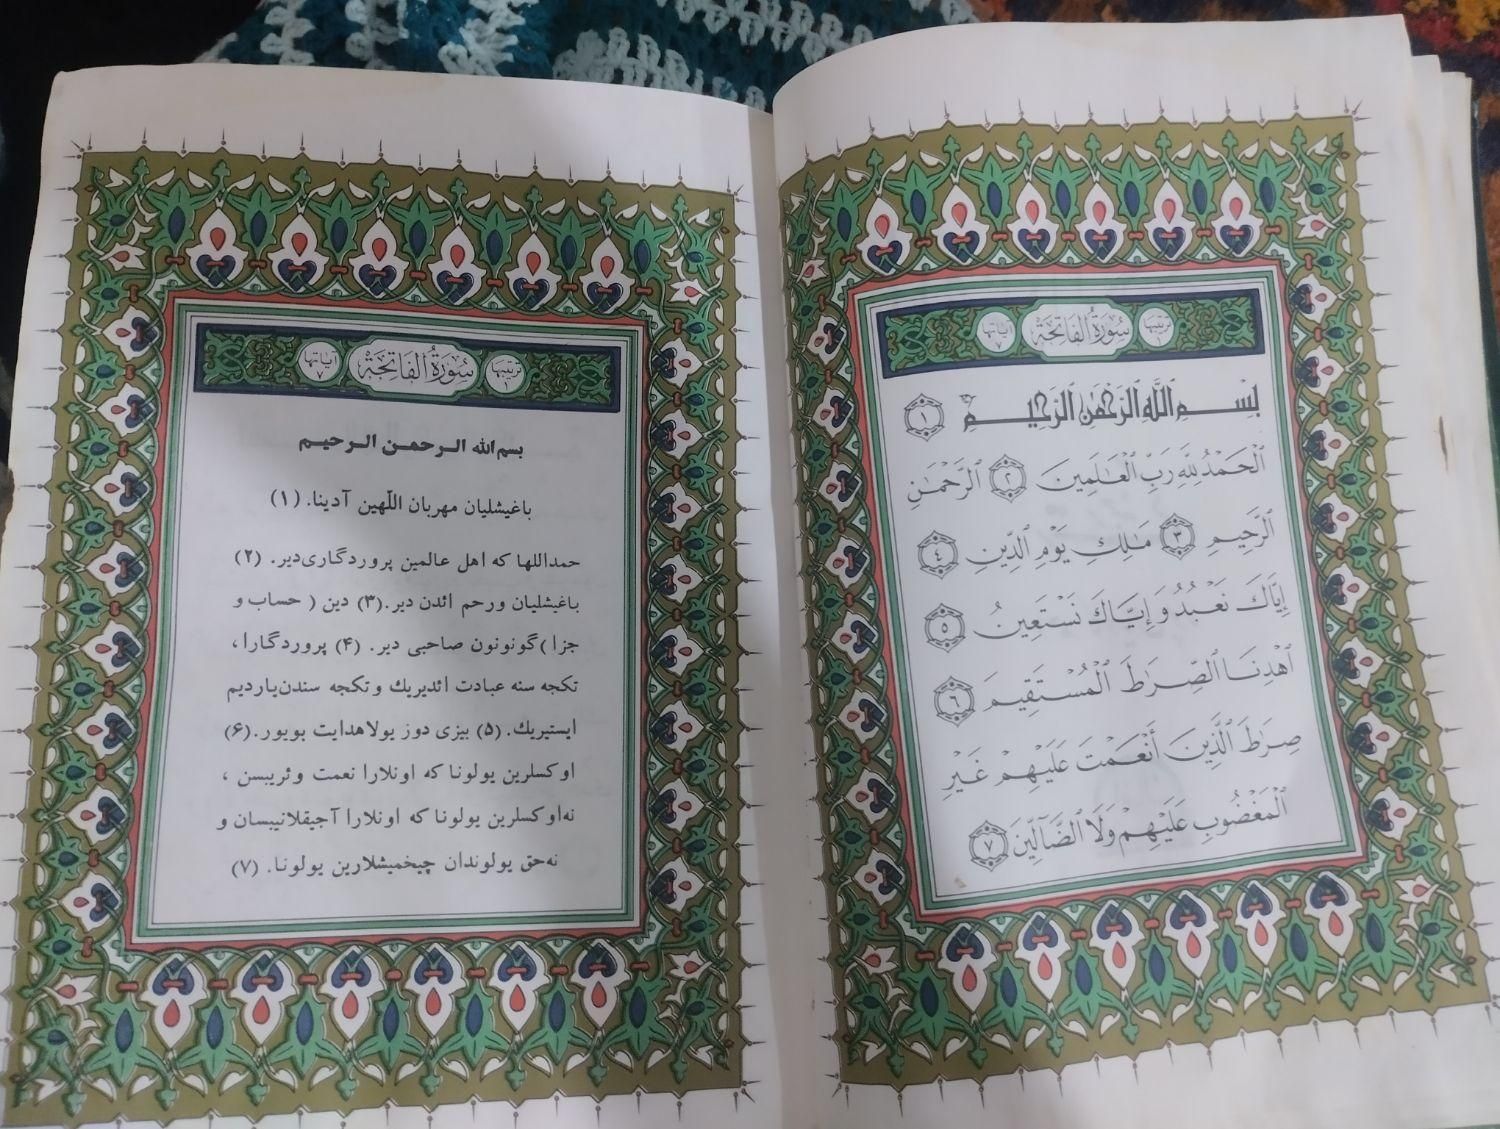 ترتيبها ١
سُورَةُ الفَاتِحَة
آياتها ٧
بِسْمِ ٱللَّهِ ٱلرَّحْمَٰنِ ٱلرَّحِيمِ ١
ٱلْحَمْدُ لِلَّهِ رَبِّ ٱلْعَٰلَمِينَ ٢ ٱلرَّحْمَٰنِ
ٱلرَّحِيمِ ٣ مَٰلِكِ يَوْمِ ٱلدِّينِ ٤
إِيَّاكَ نَعْبُدُ وَإِيَّاكَ نَسْتَعِينُ ٥
ٱهْدِنَا ٱلصِّرَٰطَ ٱلْمُسْتَقِيمَ ٦
صِرَٰطَ ٱلَّذِينَ أَنْعَمْتَ عَلَيْهِمْ غَيْرِ
ٱلْمَغْضُوبِ عَلَيْهِمْ وَلَا ٱلضَّآلِّينَ ٧
ترتيبها ١
سُورَةُ الفَاتِحَة
آياتها ٧
بسم الله الـرحمـن الـرحيـم
باغیشلیان مهربان اللّهین آدینا. (۱)
حمداللها که اهل عالمین پروردگاری‌دیر. (۲)
باغیشلیان و رحم ائدن دیر.(۳) دین ( حساب و
جزا )گونونون صاحبی دیر. (۴) پروردگارا،
تکجه سنه عبادت ائدیریك و تکجه سندن‌یاردیم
ایستیریك. (۵) بیزی دوز یولاهدایت بویور.(۶)
اوکسلرین یولونا که اونلارا نعمت وئریبسن ،
نه‌اوکسلرین یولونا که اونلارا آجیقلانیبسان و
نه‌حق یولوندان چیخمیشلارین یولونا. (۷)